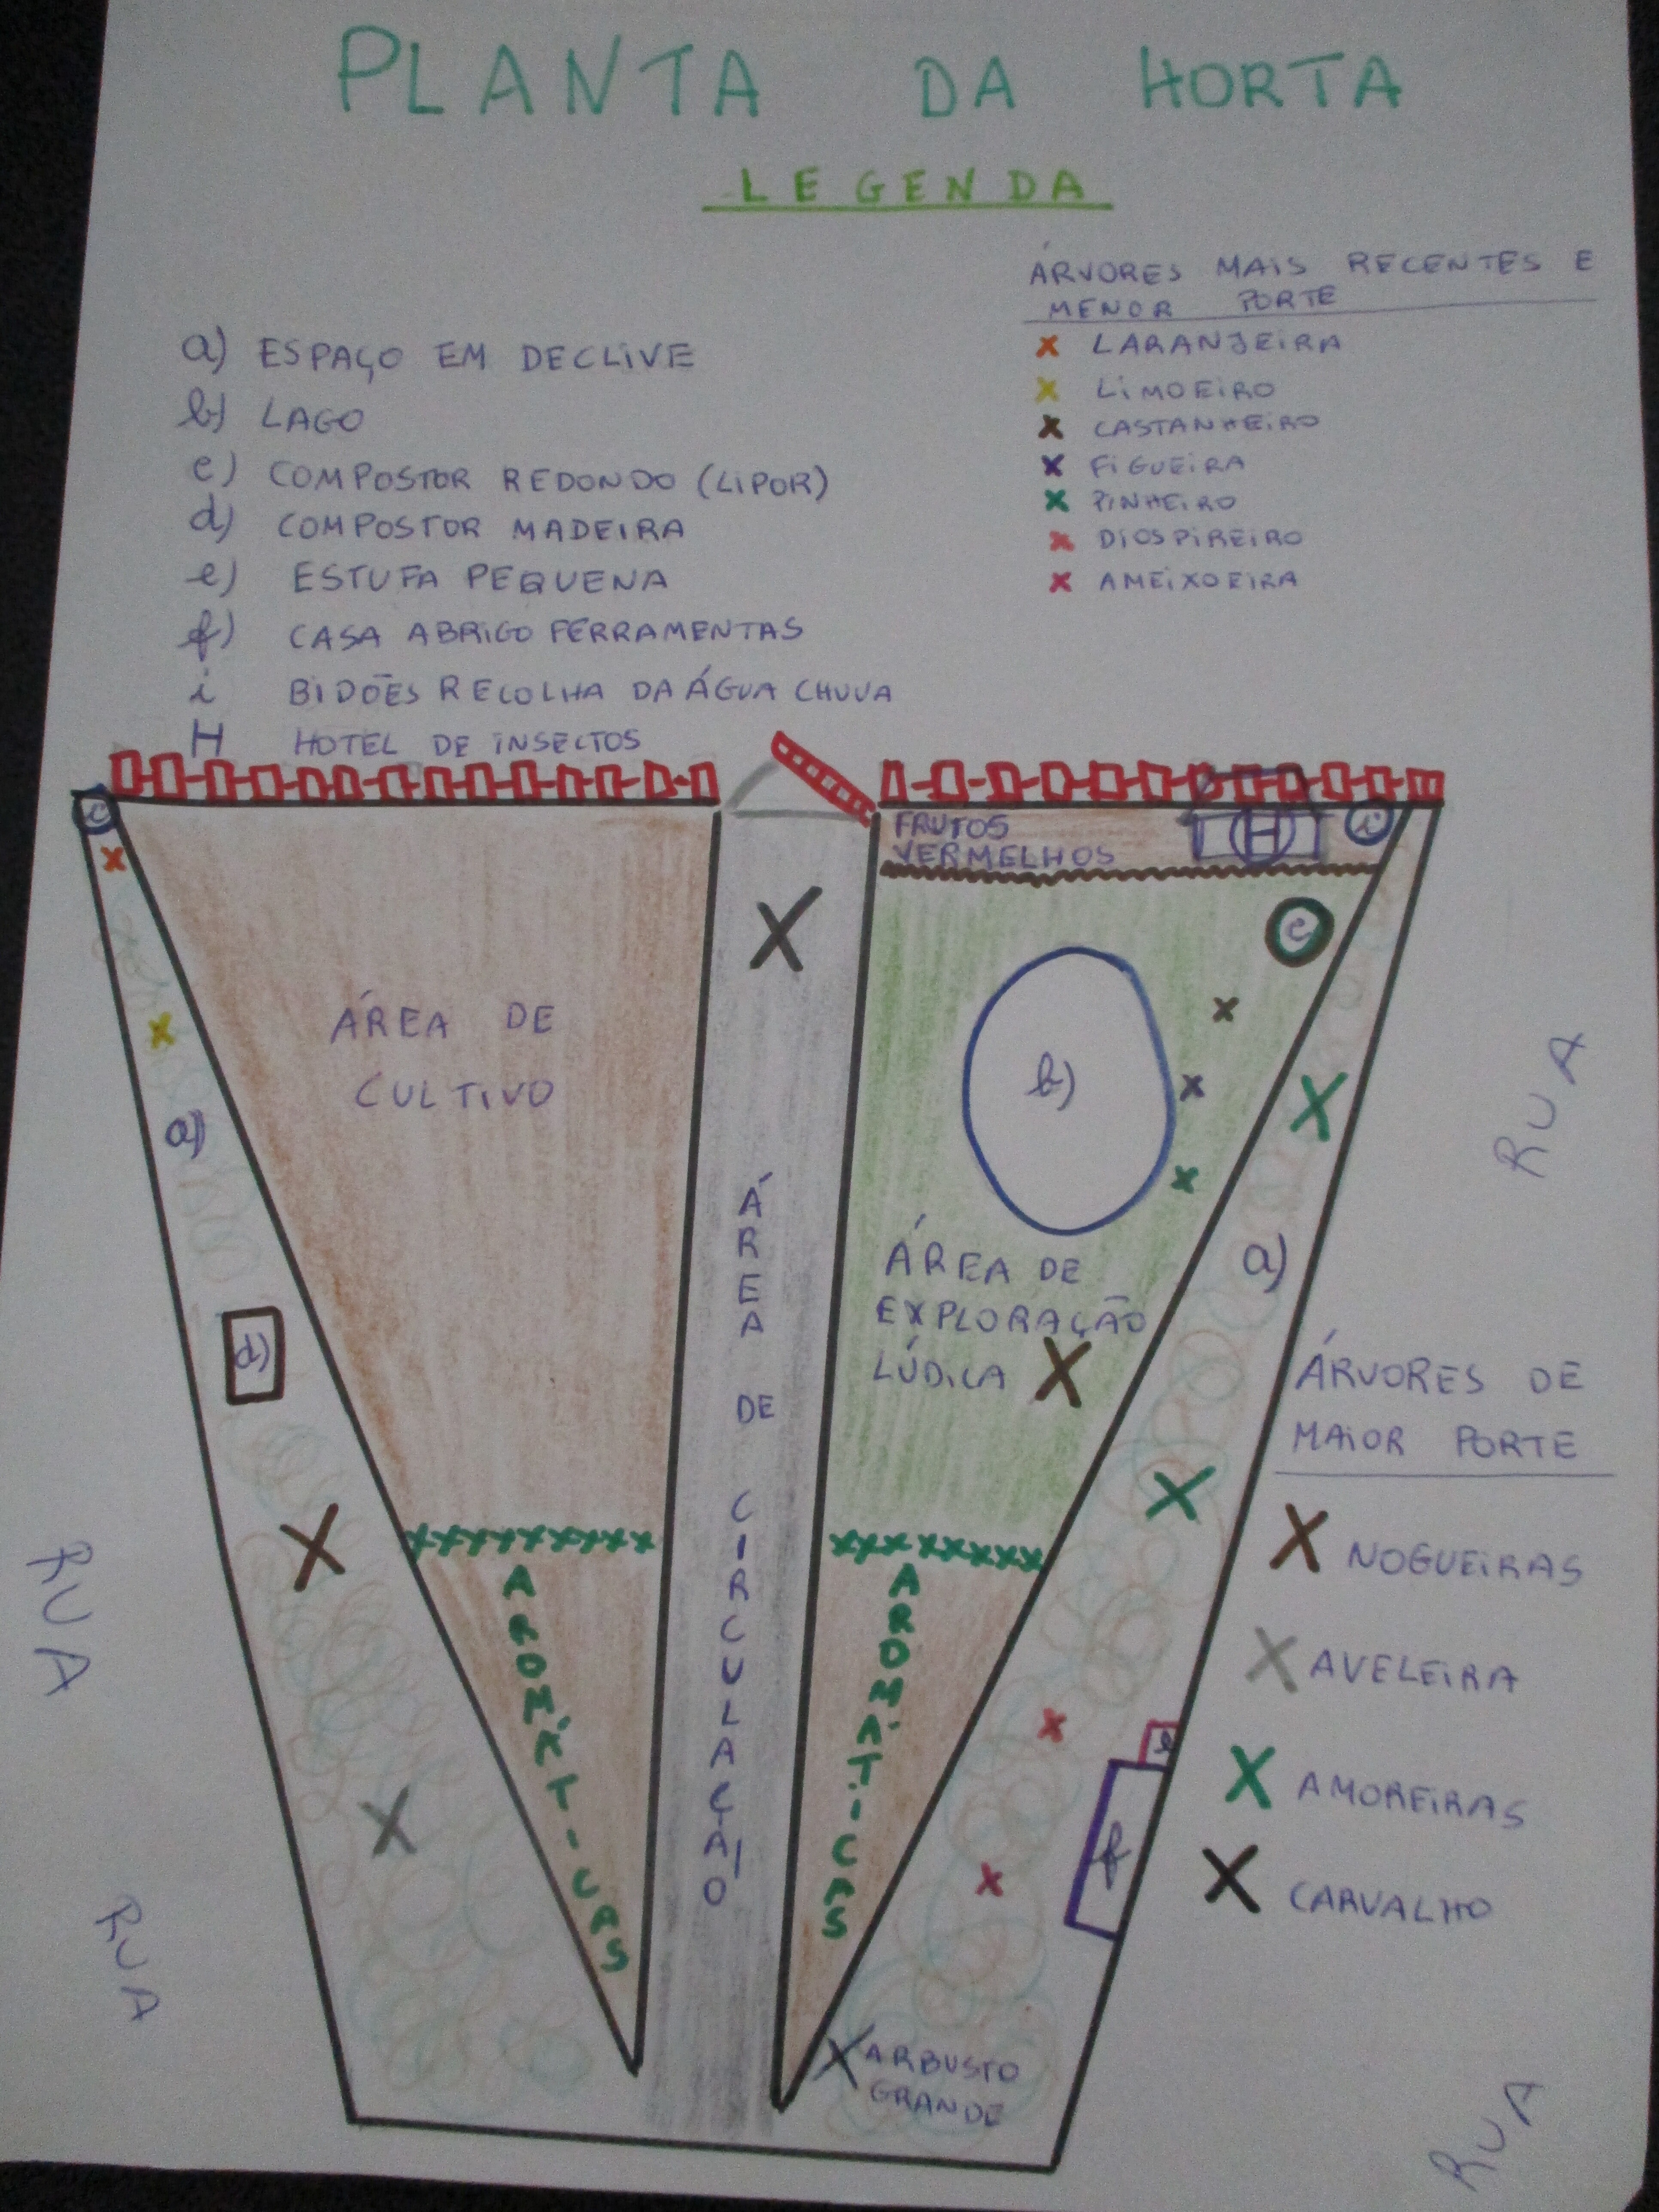 PLANTA DA HORTA
LEGENDA
a) ESPAÇO EM DECLIVE
b) LAGO
c) COMPOSTOR REDONDO (LIPOR)
d) COMPOSTOR MADEIRA
e) ESTUFA PEQUENA
f) CASA ABRIGO FERRAMENTAS
i BIDÕES RECOLHA DA ÁGUA CHUVA
H HOTEL DE INSECTOS
ÁRVORES MAIS RECENTES E
MENOR PORTE
x LARANJEIRA
x LIMOEIRO
x CASTANHEIRO
x FIGUEIRA
x PINHEIRO
x DIOSPIREIRO
x AMEIXOEIRA
c
FRUTOS
VERMELHOS
H
i
e
ÁREA DE
CULTIVO
b)
a)
RUA
ÁREA DE CIRCULAÇÃO
ÁREA DE
EXPLORAÇÃO
LÚDICA
a)
d)
ÁRVORES DE
MAIOR PORTE
X NOGUEIRAS
X AVELEIRA
X AMOREIRAS
X CARVALHO
RUA
AROMÁTICAS
AROMÁTICAS
e
f
RUA
X ARBUSTO
GRANDE
RUA